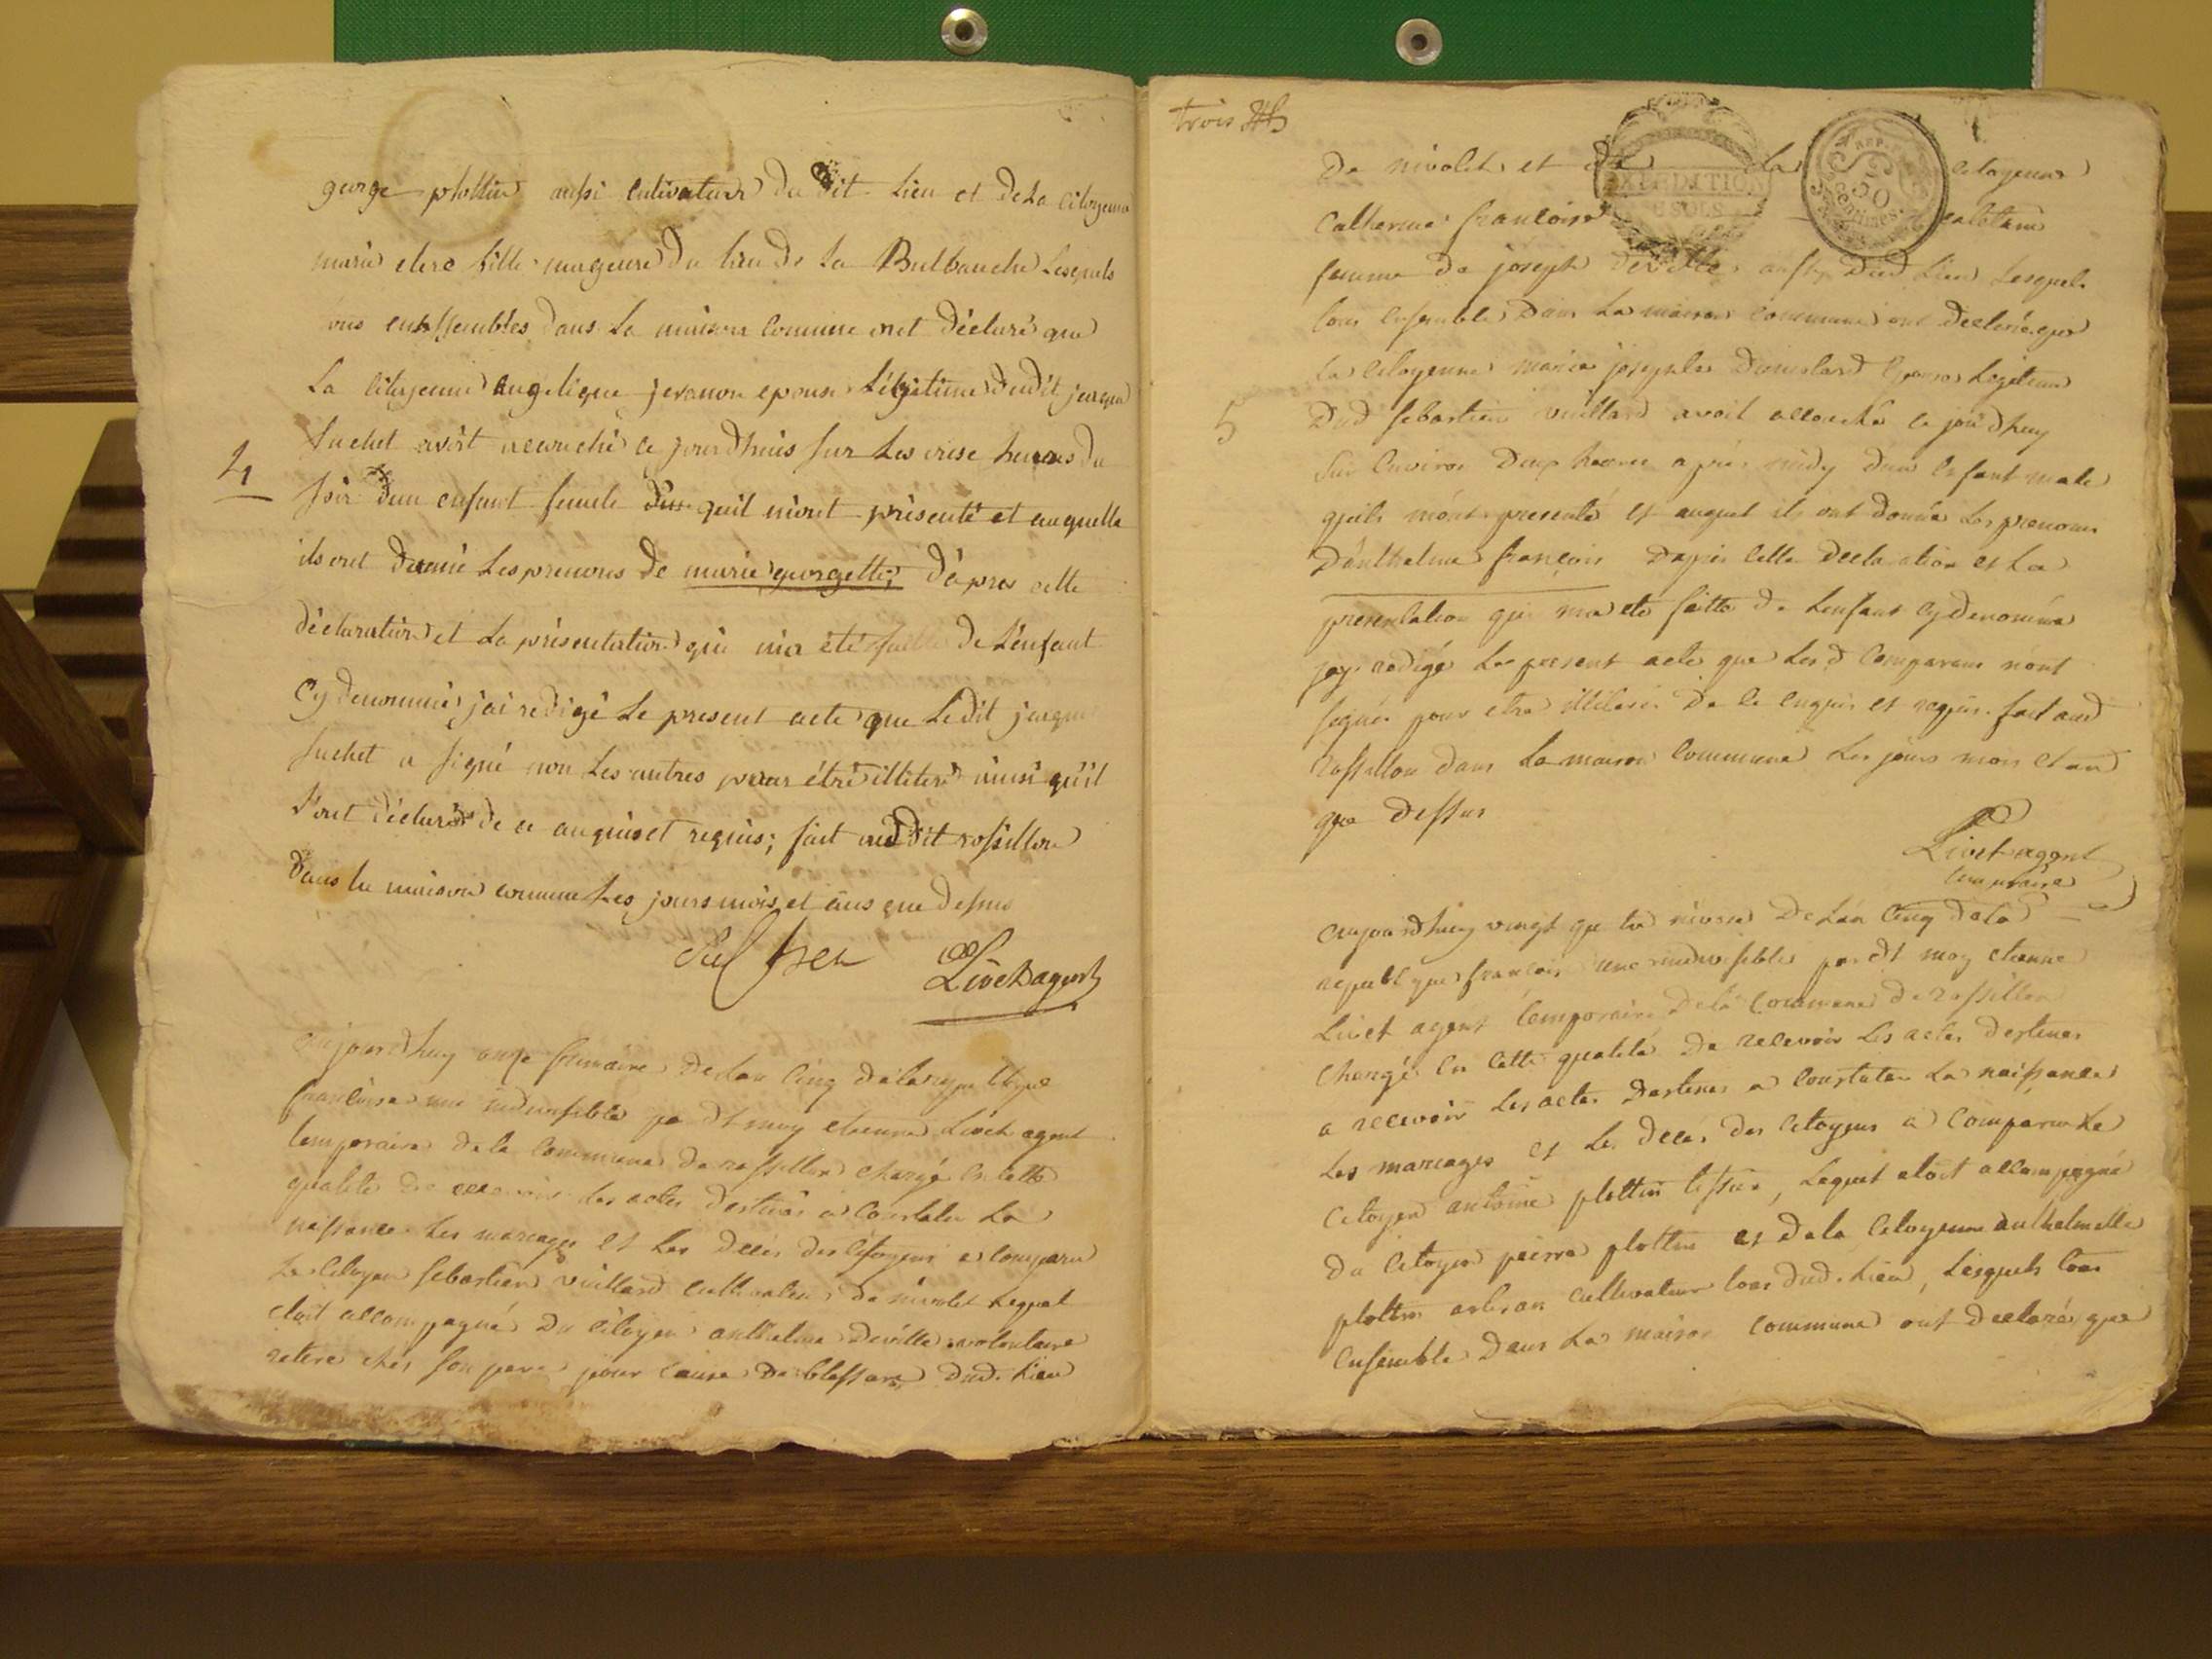 george plottin aussi cultivateur du dit lieu et de la citoyenne
marie clerc fille majeure du lieu de la Bulbanche lesquels
tous enssembles dans la maison comune ont déclaré que
la citoyenne angelique jeranon epouse légitime dudit jacque
suchet avoit acouché ce jourdhuis sur les onse heures du
4
soir dun enfant femele quil m'ont présenté et auquelle
ils ont donné les prenoms de marie georgette; d'apres cette
déclaration et la présentation qui m'a été faitte de l'enfant
cy denommé j'ai redigé le present acte que le dit jacque
suchet a signé non les autres pour étre illiteré ainsi quil
l'ont déclaré de ce anquis et requis; fait audit rossillon
dans la maison comune les jours mois et ans que dessus
Suchet Livet agent
aujourdhuy onze frimaire de lan cinq de la republique
francoise une indivisible par dt moy etienne Livet agent
temporaire de la commune de rossillon chargé en cette
qualité de recevoir les actes destinés a constater la
naissance les mariages et les décès des citoyens a comparu
le citoyen sebastien vuillard cultivateur de nivolet lequel
etoit accompagné du citoyen anthelme deville volontaire
retiré chés son pere pour cause de blessure dud. lieu
trois
De nivolet et de la citoyenne
EXPEDITION
SOLS
REP. FRA
50
centimes
catherine francoise
femme de joseph deville aussy dud lieu lesquels
tous ensemble dans la maison commune ont declaré que
la citoyenne marie josephte epouse legitime
5
dud sebastien vuillard avoit accouché ce jourdhuy
sur environ deux heures aprés midy dun enfant male
quils mónt presenté et auquel ils ont donné les prenoms
d'anthelme françois dapres cette declaration et la
presentation qui ma eté faitte de lenfant cy denommé
jay redigé le present acte que les d comparans nont
signés pour etre illiterés de ce enquis et requis. fait aud
rossillon dans la maison commune les jours mois et an
que dessus
Livet agent
temporaire
aujourdhuy vingt nivose de lan cinq de la
republique francoise une indivisible par dt moy etienne
Livet agent temporaire de la commune de rossillon
chargé en cette qualité de recevoir les actes destines
a recevoir les actes destines a constater la naissance
les mariages et les décés des citoyens a comparu le
citoyen antoine plottin tissier, lequel etoit accompagné
du citoyen pierre plottin et de la citoyenne anthelmette
plottin artisan cultivateur tous dud. lieu, lesquels tous
ensemble dans la maison commune ont declaré que